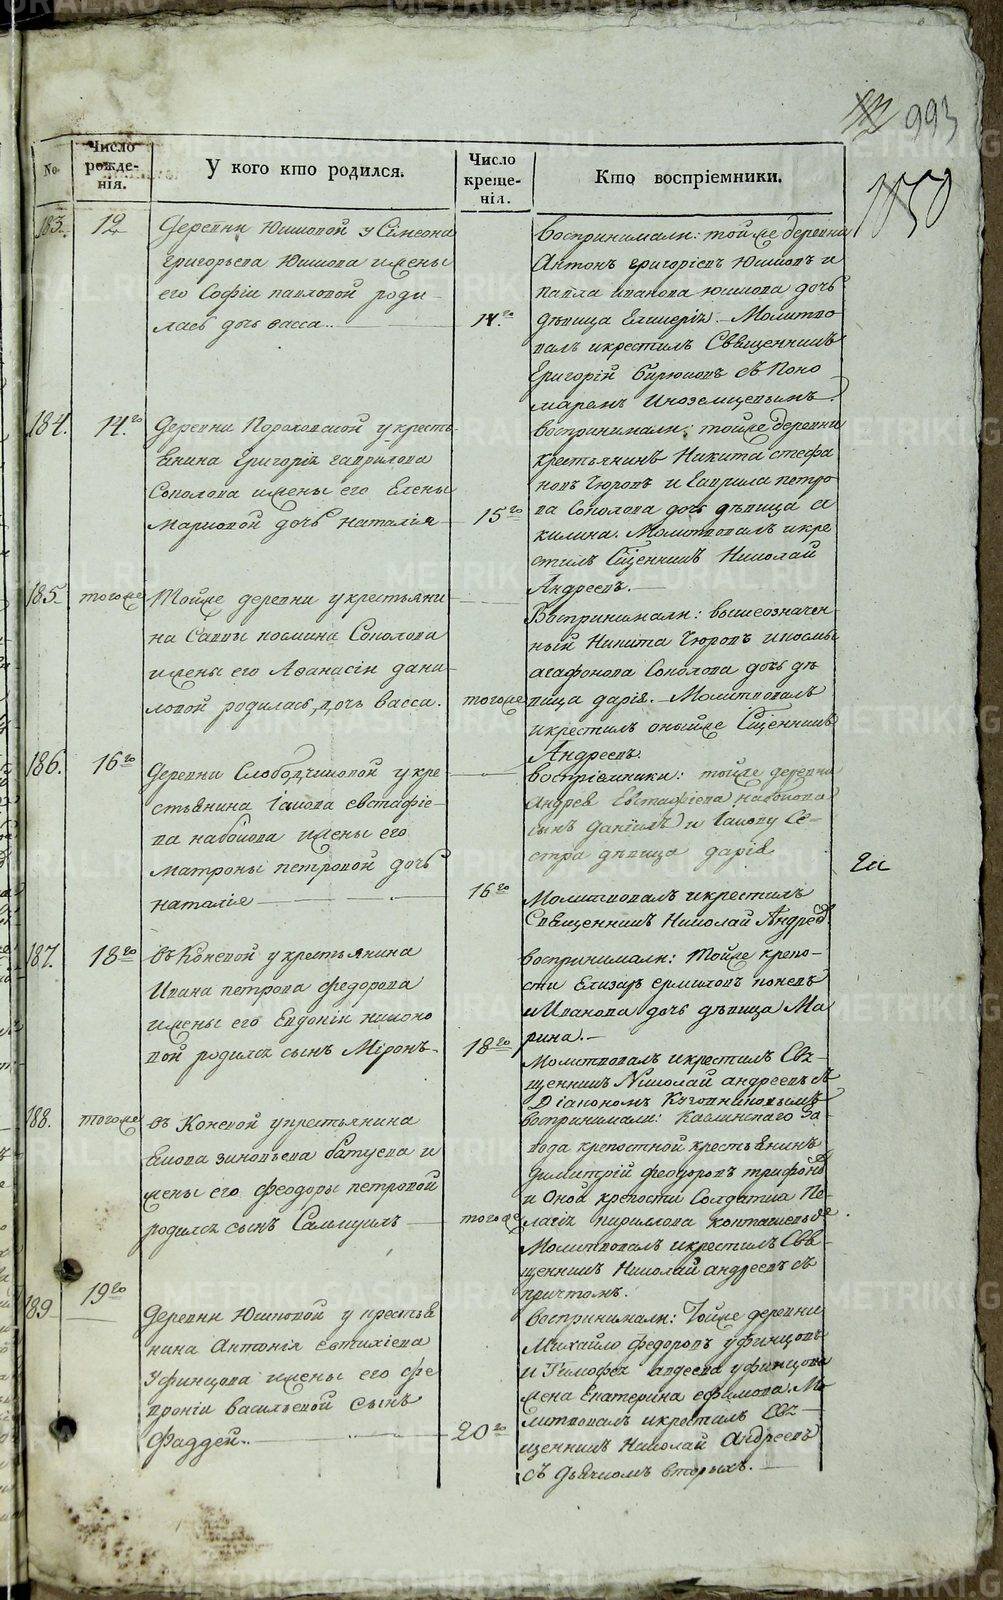 993
1150
No.
Число рожде-
нія.
У кого кто родился.
Число креще-
нія.
Кто воспріемники.
183. 12
Деревни Юшковой у Сімеона
Григорьева Юшкова жены
его Софіи павловой роди-
лась дочь васса..
14.го
воспринимали: тойже деревни
Антонъ григоріевъ Юшковъ и
павла иванова юшкова дочь
дѣвица Молитво-
валъ и крестилъ Священникъ
Григорій Бирюковъ съ Поно-
маремъ Иноземцевымъ.
184. 14.го
Деревни Пороховской у кресть-
янина Григорія гаврилова
Соколова жены его Елены
марковой дочь наталія
15го
воспринимали: тойже деревни
крестьянинъ Никита стефа
новъ Чюровъ и Гаврила петро
ва Соколова дочь дѣвица а
килина. Молитвовалъ и кре
стилъ Сщенникъ Николай
Андреевъ.
185. тогоже
Тойже деревни у крестьяни
на Саввы космина Соколова
жены его Афанасіи дани-
ловой родилась дочь васса.
тогоже
Воспринимали: вышеозначен
ный Никита Чюровъ и космы
агафонова Соколова дочь дѣ
вица дарія. Молитвовалъ
и крестилъ онойже Сщенникъ
Андреевъ.
186. 16го
Деревни Слободчиковой у кре
стьянина Іакова евстафіе-
ва набокова жены его
матроны петровой дочь
наталіе
16го
воспріемники: тойже деревни
Андрея Евстафіева набокова
сынъ Даніилъ и Іакову се-
стра дѣвица дарія
Молитвовалъ и крестилъ
Священникъ Николай Андреев
187. 18го
въ Коневой у крестьянина
Ивана петрова федорова
жены его Евдокіи никоно
вой родился сынъ Міронъ
18го
воспринимали: Тойже крепо-
сти Елизаръ ермиловъ коневъ
и Иванова дочь дѣвица Ма
рина.
Молитвовалъ и крестилъ Свя-
щенникъ Николай андреевъ съ
Діакономъ
188. тогоже
въ Коневой у крестьянина
Екова зиновьева батуева
жены его феодоры петровой
родился сынъ Самуилъ
тогоже
воспринимали: Каслинскаго за
вода крепостной крестьянинъ
Димитрій феодоровъ трифоновъ
и Оной крепости Солдатка Пе-
лагія кирилова
Молитвовалъ и крестилъ Свя-
щенникъ Николай андреевъ съ
причтомъ.
189 19го
Деревни Юшковой у крестья
нина Антонія евтихіева
Уфинцова жены его фе
вроніи васильевой сынъ
Фаддей.
20го
воспринимали: Тойже деревни
Михайло федоровъ уфинцовъ
и Тимофея авдеева уфинцова
жена Екатерина ефимова. Мо
литвовалъ и крестилъ Свя-
щенникъ Николай Андреевъ
съ Дьячкомъ вторыхъ.